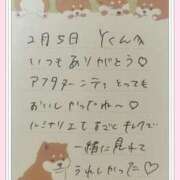 2月5日 Yくんへ
いつもありがとう♡
アフタヌーンティとっても
おいしかったね〜♡
ルミナリエもすごくキレイで
一緒に見れて
うれしかった♡